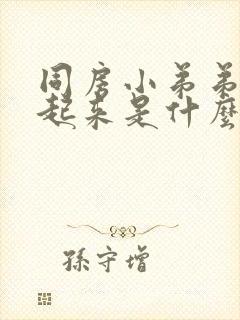 同房小弟弟
起来是什麼
孫守增